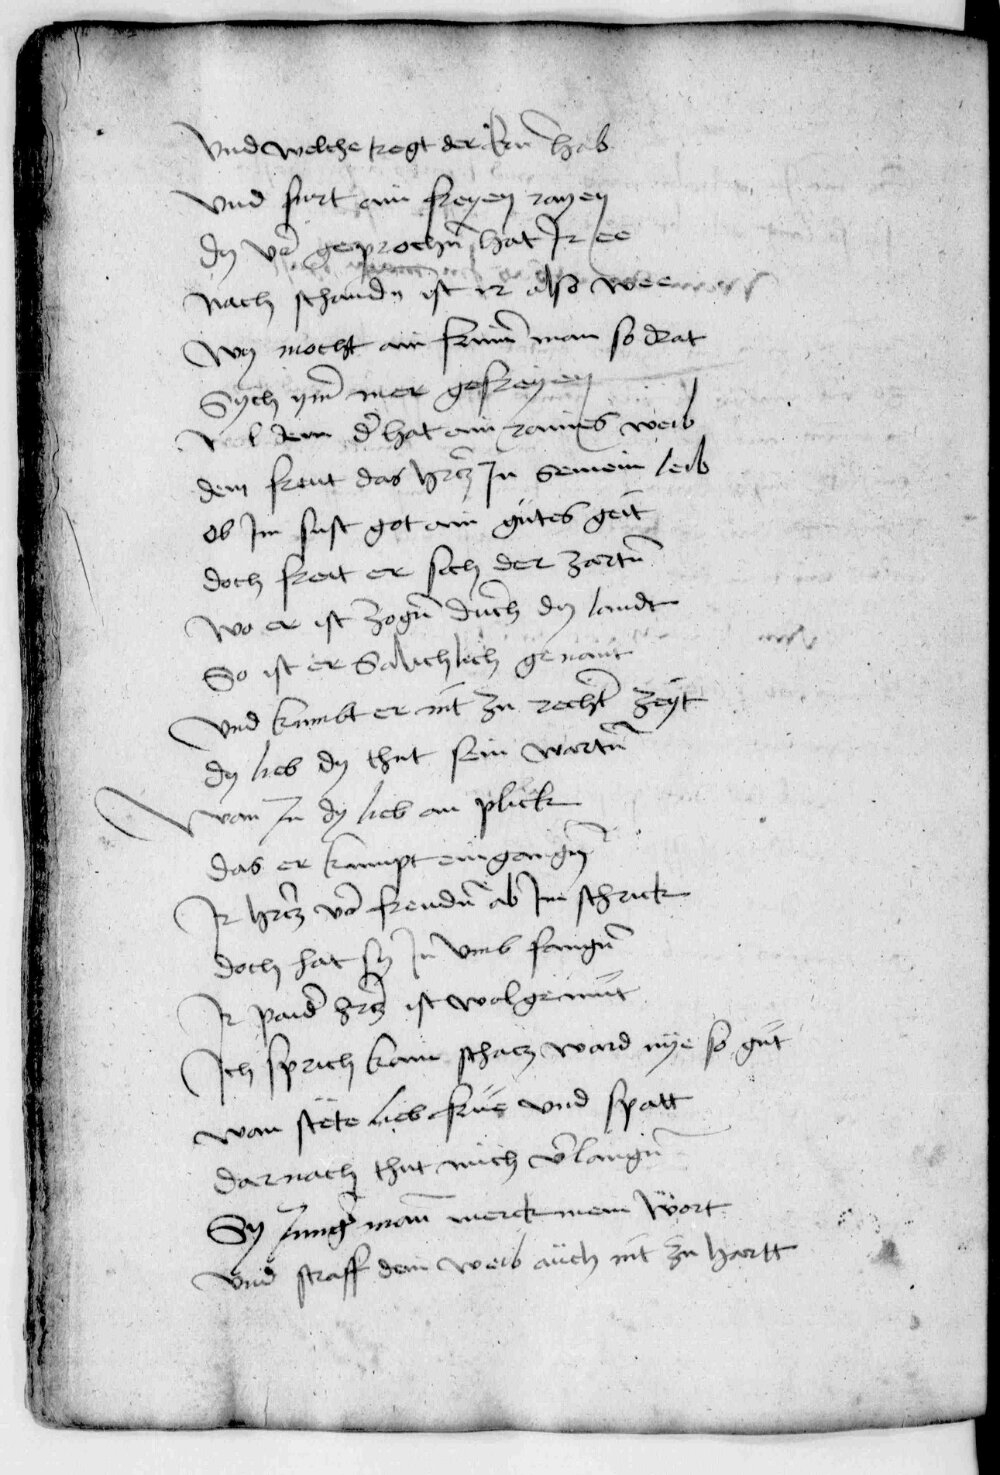 Vnd welche tregt der krn̄ hab
Vnd furt ain freyen rayen
dy vͤr geprochn̄ hat Ir ee
Nach schandn̄ ist ir also wee
Wy mocht ain frum̄ man so drat
Sych ym̄ mer gefreyen
Vol dem d̄ hat ain raines weib
dem freut das hrcz̄ In seinem leib
ob Im sust got ain gütes geit
doch freit er sich der zartn̄
Wo er ist zogn̄ durch dy landt
So ist er Salichlich genant
Vnd kumbt er nit zu recht̄ zeyt
dy lieb dy thut sein wartn̄
Wan In dy lieb an plickt
das er kumpt eingangn̄
Ir hrcz̄ vō freudn̄ ab Im schrick
doch hat sy In̄ vmb fangn̄
Ir paid̄ hrcz̄ ist wolgemüt
Ich sprich kain schacz ward nye so güt
wan stëte lieb früe vnd spatt
darnach thut mich v̄langn̄
Sy Iunḡ man̄ merck mein wort
Vnd straff dein weib aüch nit zu hartt